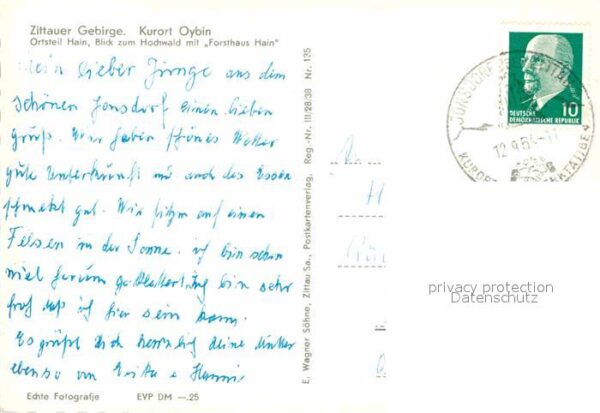 Zittauer Gebirge. Kurort Oybin
Ortsteil Hain, Blick zum Hochwald mit „Forsthaus Hain"
Mein lieber Junge aus dem
schönen Jonsdorf einen lieben
Gruß. Wir haben schönes Wetter
gute Unterkunft und auch das Essen
schmekt gut. Wir sitzen auf einen
Felsen in der Sonne. ich bin schon
viel herum geklettert bin sehr
froh daß ich hier sein kann.
Es grüßt dich herzlich deine Mutter
ebenso von Erika u Hanni
Echte Fotografie EVP DM —.25
E. Wagner Söhne, Zittau Sa., Postkartenverlag, Reg.-Nr. III/28.38 Nr. 135
DEUTSCHE
DEMOKRATISCHE REPUBLIK
10
12.9.
KURORT
privacy protection
Datenschutz